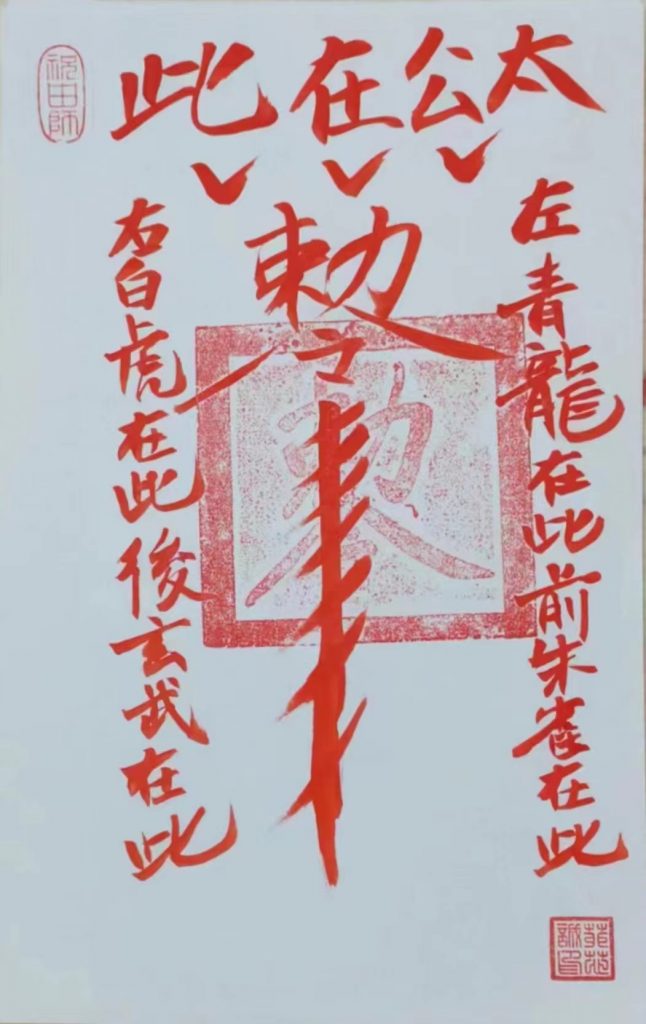 太公在此
左青龍在此前朱雀在此
敕令
右白虎在此後玄武在此
敕
祝由師